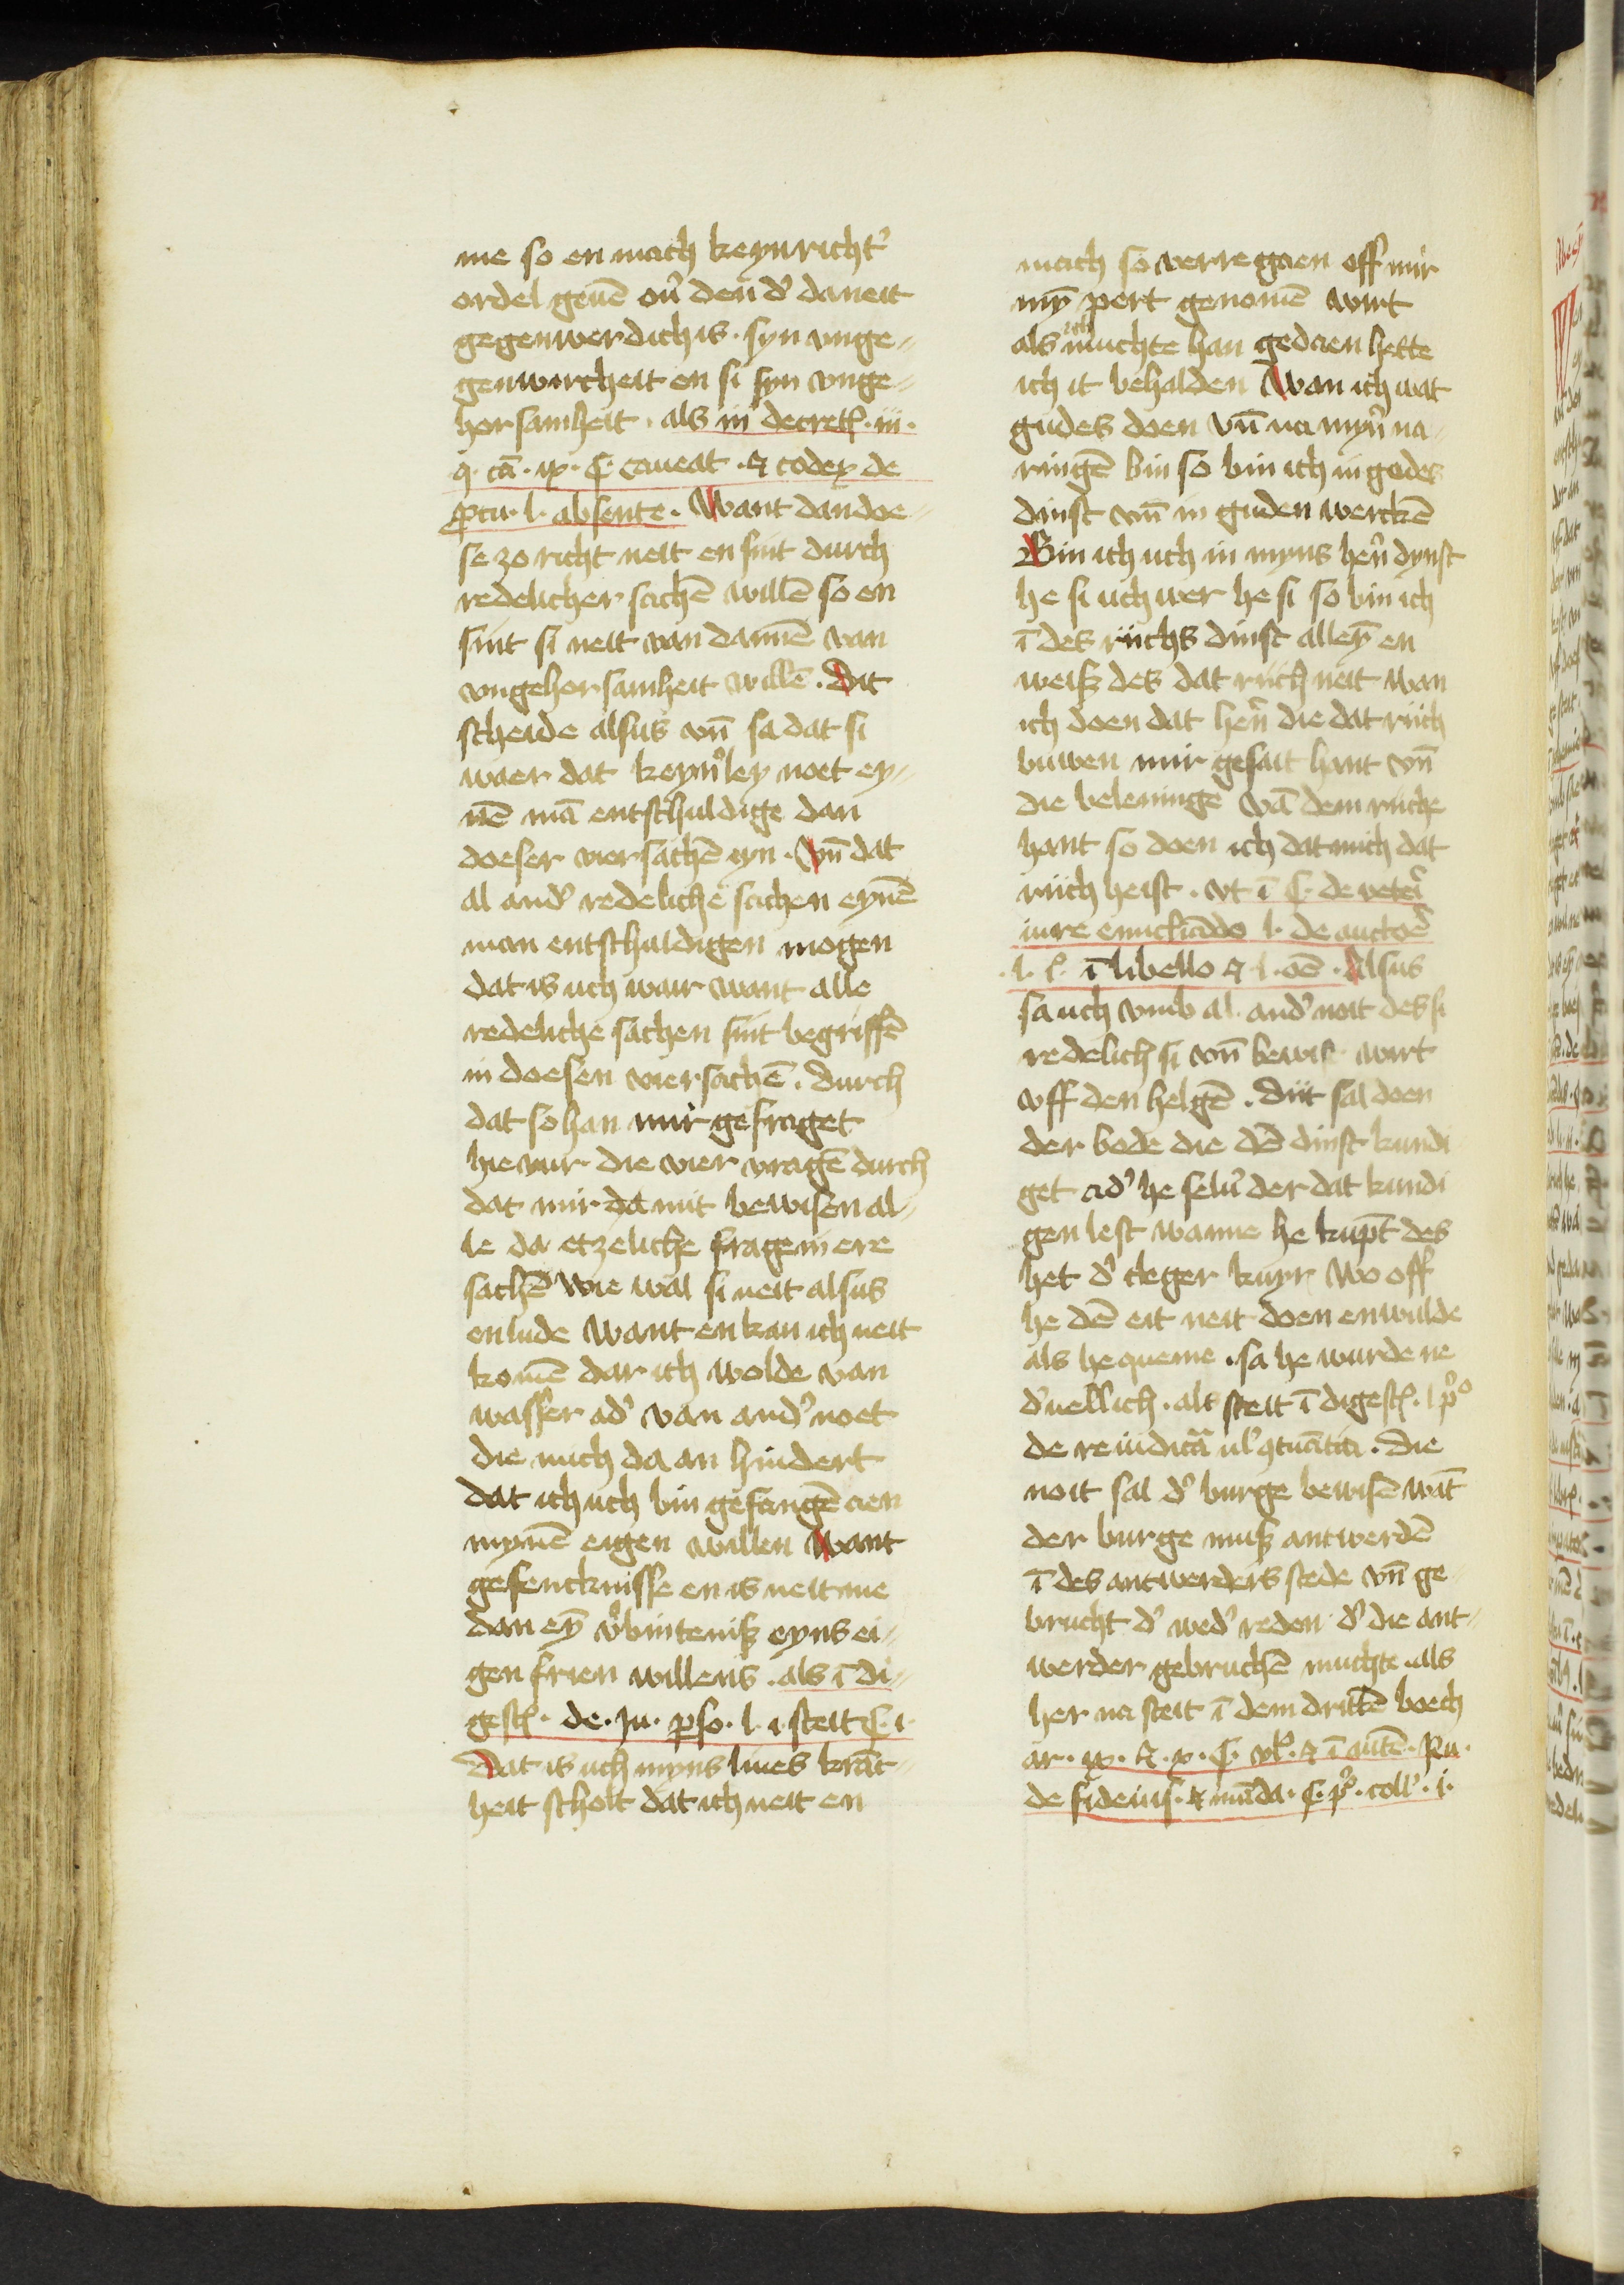 me so en mach keyn richt᷒
ordel geuē ou᷒ den d᷒ da neit
gegenwerdich is · syn vnge⸗
genwircheit en si syn vnge⸗
horsamheit · als in decret · iii ·
q · cā · ix · §· caueat · ⁊ codex de
ꝓcu · l · absente · Want dan doe⸗
se zo richt neit en sint durch
redelicher sachē willē so en
sint si neit van dannē van
vngehorsamheit willē · Dit
scheide alsus vn̄ sa dat si
waer dat keyn᷒ley noet ey⸗
nē mā entschuldige dan
doeser vier sachē eyn · Vn̄ dat
al and᷒ redeliche sachen eynē
man entschuldigen mogen
dat is uch wair want alle
redeliche sachen sint begriffē
in doesen vier sachē · durch
dat so han mir gefraget
hie vur die vier vragē durch
dat mir da mit bewisen al⸗
le da etzeliche frage in ere
sachē wie wal si neit alsus
en lude want en kan ich neit
komē dar ich wolde van
wasser ad᷒ van and᷒ noet
die mich da an hindert
dat ich uch bin gefangē aen
mynē eigen willen Want
gefencknisse en is neit me
dan eyn̄ v᷒bintenisz eyns ei⸗
gen frien willens · als ī di⸗
gest · de · Ju · pso · l · i · steit §· i ·
Dat is uch myns liues kranc⸗
heit scholt dat ich neit en
mach so verre gaen off mir
my̅ pert genomē wirt
als ich muchte han gedaen hette
ich it behalden Wan ich wat
gudes doen vn̄ na myn᷒ na⸗
ringē bin so bin ich in godes
dinst vn̄ in guden werckē
Bin ich uch in myns hēn dynst
he si uch wer he si so bin ich
ī des richs dinst alley̅ en
weisz des dat rich neit wan
ich doen dat hēn die dat rich
buwen mir gesait hant vn̄
die beleninge vā dem riche
hant so doen ich dat mich dat
rich heist · vt ī §· de veteri
iure enucliādo l · de auctoē
· l · §· ī libello ⁊ l · oē · Alsus
sa uch vmb al and᷒ noit des si
redelich si vn̄ bewist wirt
vff den helgē · Dit sal doen
der bode die dē dinst kundi
get ad᷒ he selu᷒ der dat kundi
gen lest wanne he kūpt des
het d᷒ cleger kuyr wo off
he dē eit neit doen en wulde
als he queme · sa he wurde ne
d᷒uellich · als steit ī digest · l p᷒o
de re iudicā ul᷒ ꝯtuātia · Die
noit sal d᷒ burge bewisē wāt
der burge musz antwerdē
ī des antwerders stede vn̄ ge⸗
brucht d᷒ wed᷒ reden d᷒ die ant⸗
werder gebruchē muchte · als
her na steit ī dem drittē boech
ar · ix · ⁊ · x · §· vl᷒ · ⁊ ī autē · Ru ·
de fideius · ⁊ māda · §· p᷒ · coll᷒ · i ·